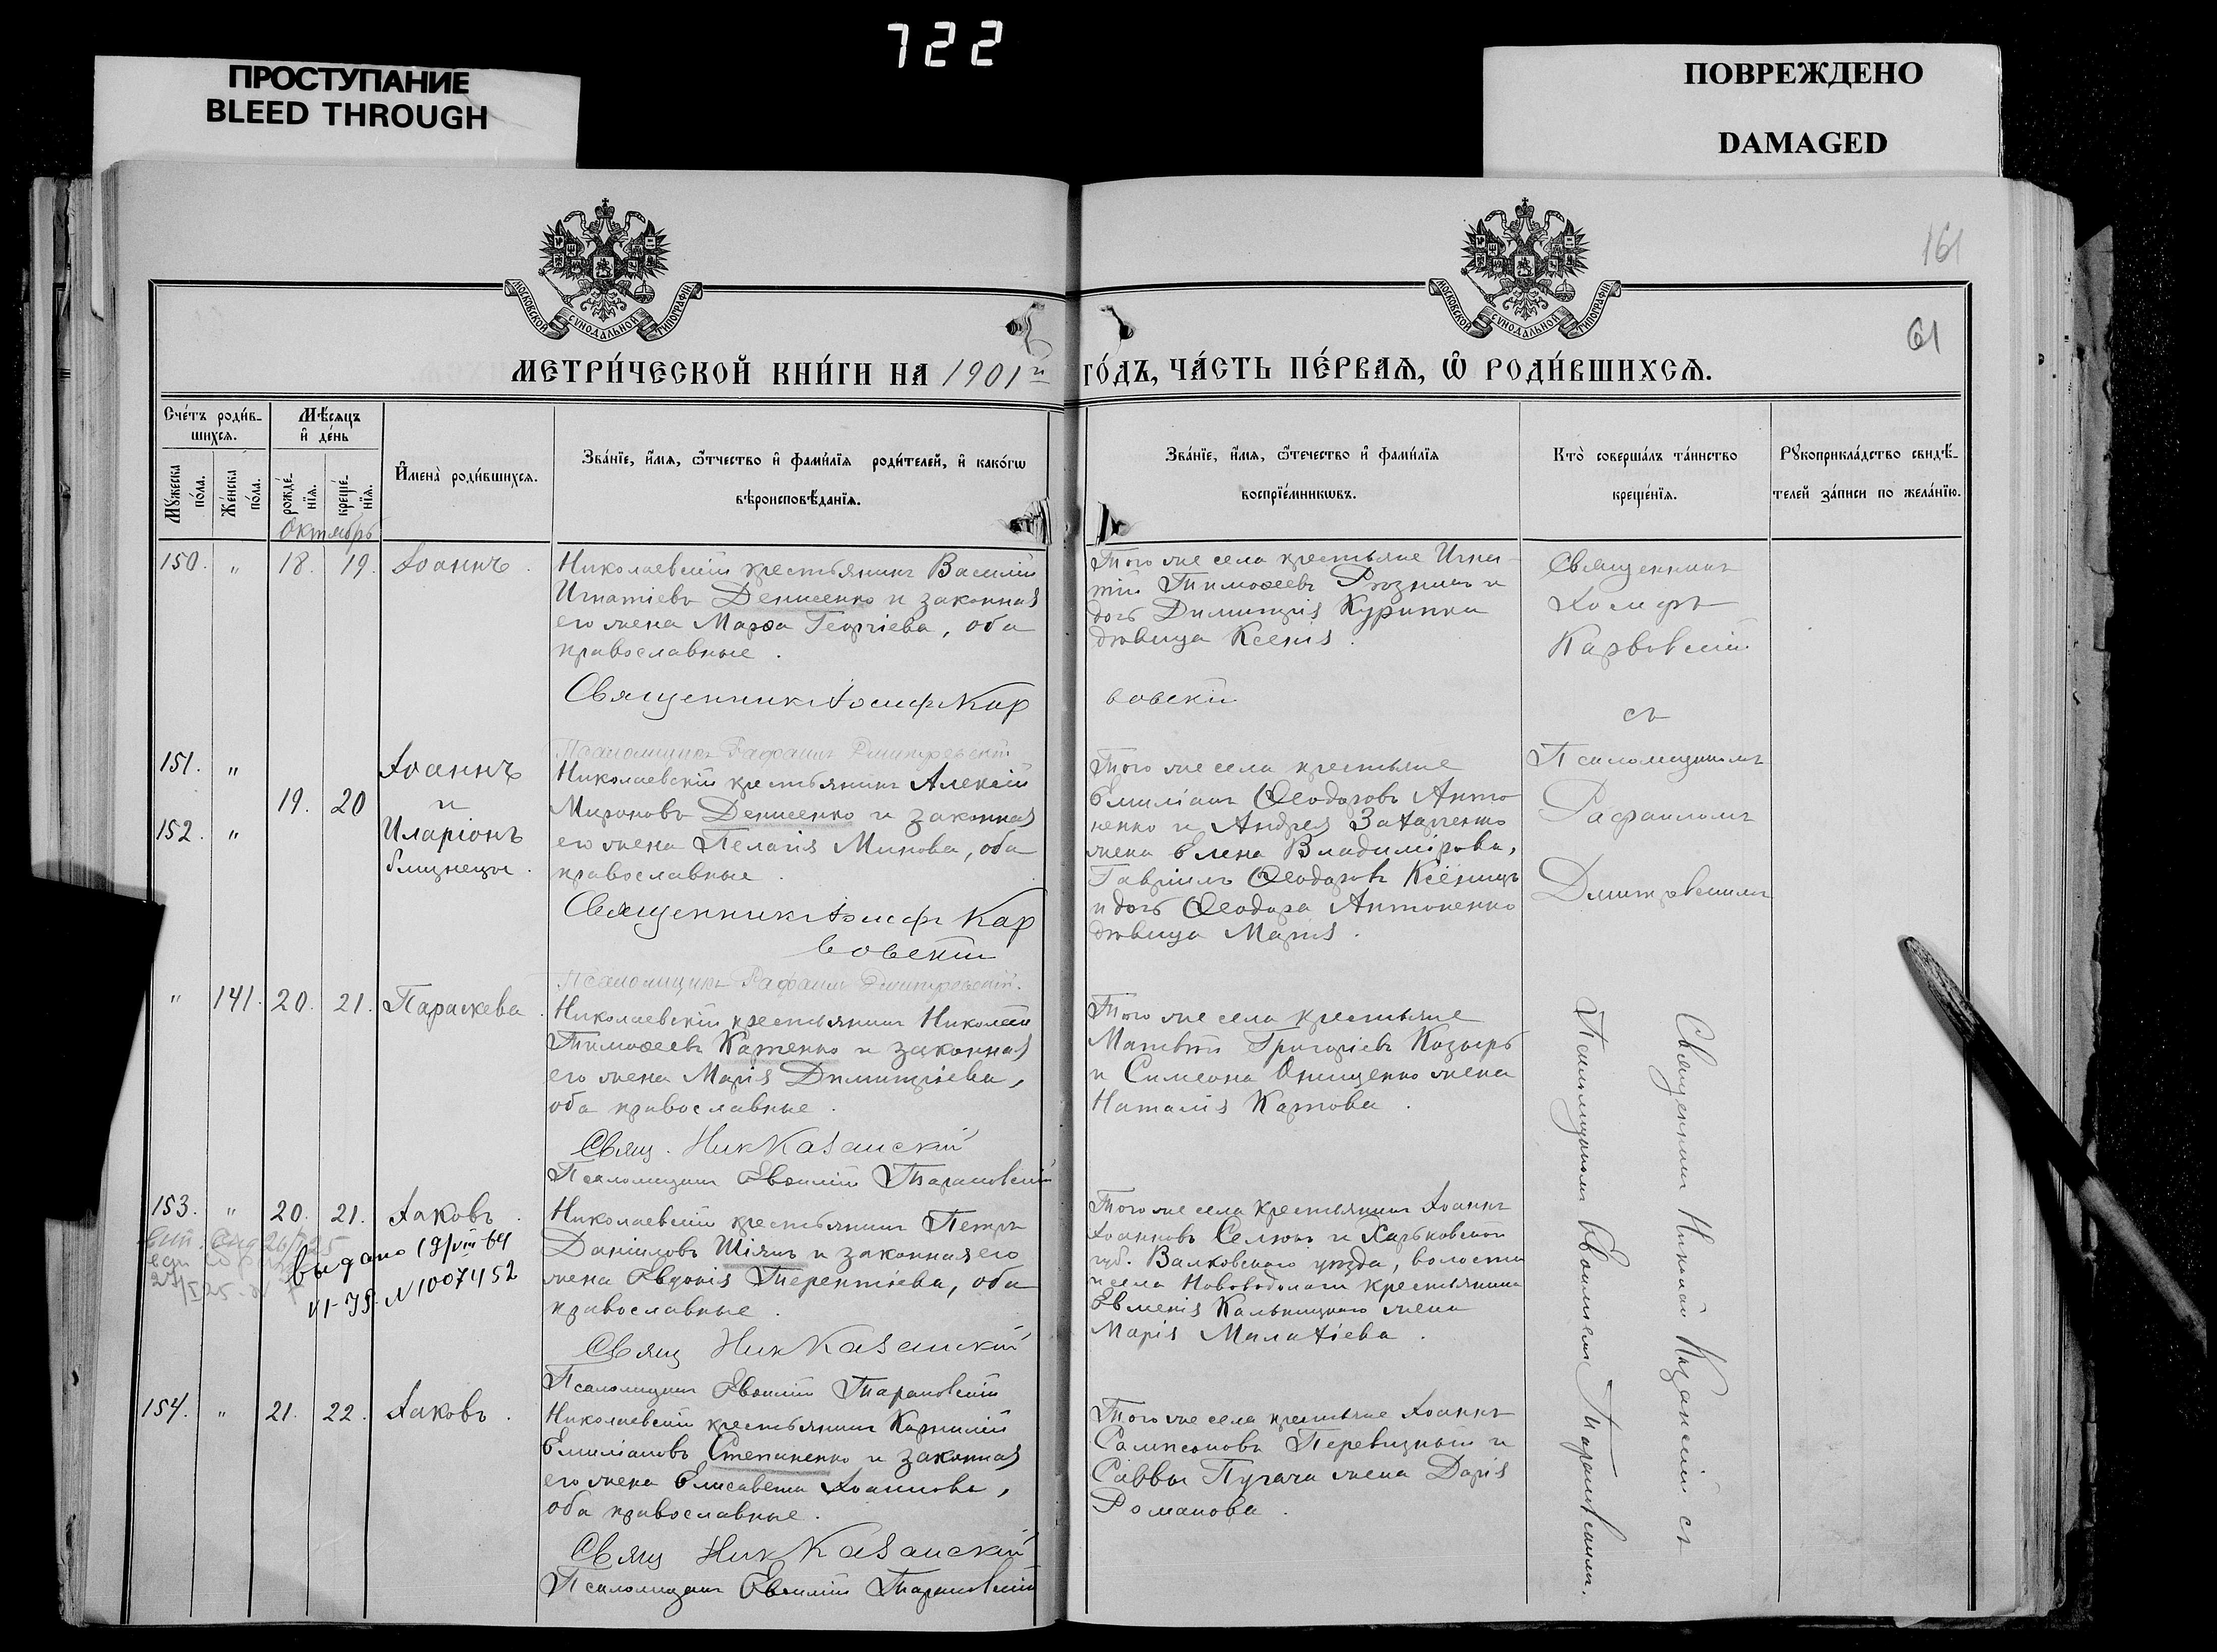 722
ПРОСТУПАНИЕ
BLEED THROUGH
ПОВРЕЖДЕНО
DAMAGED
МОСКОВСКОЙ СѴНОДАЛЬНОЙ ТИПОГРАФІИ
МОСКОВСКОЙ СѴНОДАЛЬНОЙ ТИПОГРАФІИ
161
61
МЕТРИ́ЧЕСКОЙ КНИ́ГИ НА 1901й ГО́ДЪ, ЧА́СТЬ ПЕ́РВАѦ, Ѡ҆ РОДИ́ВШИХСѦ.
Сче́тъ роди́в-
шихсѧ.
Мѣ́сѧцъ
и҆ де́нь
Мꙋ́жеска по́ла.
Же́нска по́ла.
рожде́нїѧ.
креще́нїѧ.
И҆мена̀ роди́вшихсѧ.
Зва́нїе, и҆́мѧ, ѻ҆́тчество и҆ фами́лїѧ роди́телей, и҆ како́гѡ
вѣроисповѣ́данїѧ.
Зва́нїе, и҆́мѧ, ѻ҆́течество и҆ фами́лїѧ
воспрїе́мникѡвъ.
Кто̀ соверша́лъ та́инство
креще́нїѧ.
Рꙋкоприкла́дство свидѣ́-
телей за́писи по жела́нїю.
Октябрь
150. " 18. 19. Іоаннъ.
Николаевскій крестьянинъ Василій
Игнатіевъ Денисенко и законная
его жена Марѳа Георгіева, оба
православные.
Священникъ Іосифъ Кар
вовскій
Того же села крестьяне Игна-
тій Тимоѳеевъ и
дочь Димитрія Курипка
дѣвица Ксенія.
Священникъ
Іосифъ
Карвовскій
съ
Псаломщикомъ
Рафаиломъ
Дмитревскимъ
Псаломщикъ Рафаилъ Дмитревскій
151. "
152. "
19. 20
Іоаннъ
и
Иларіонъ
близнецы.
Николаевскій крестьянинъ Алексій
Мироновъ Денисенко и законная
его жена Пелагія Минова, оба
православные.
Священникъ Іосифъ Кар
вовскій
Псаломщикъ Рафаилъ Дмитревскій.
Того же села крестьяне
Емиліанъ Ѳеодоровъ Анто
ненко и Андрея Захарченко
жена Елена Владимірова,
Гавріилъ Ѳеодоровъ Ксёнзыцъ
и дочь Ѳеодора Антоненко
дѣвица Марія.
" 141. 20. 21. Параскева.
Николаевскій крестьянинъ Николай
Тимоѳеевъ Катенко и законная
его жена Марія Димитріева,
оба православные.
Свящ. Ник Казанскій
Псаломщикъ Евѳимій Тарановскій
Того же села крестьяне
Матвѣй Григоріевъ Козырь
и Симеона Онищенко жена
Наталія Карпова.
Священникъ Николай Казанскій съ
Псаломщикомъ Евѳиміемъ Тарановскимъ.
153. " 20. 21. Іаковъ.
выдано 19/VIII 64
VI-ЯЯ N 1007452
Николаевскій крестьянинъ Петръ
Даніиловъ Шіянъ и законная его
жена Евдокія Терентіева, оба
православные.
Свящ Ник Казанскій
Псаломщикъ Евѳимій Тарановскій
Того же села крестьянинъ Іоаннъ
Іоанновъ Селюкъ и Харьковской
губ. Валковскаго уѣзда, волости
и села Нововодолаги крестьянина
Евменія Кальницкаго жена
Марія Малахіева.
154. " 21. 22. Іаковъ.
Николаевскій крестьянинъ Корнилій
Емиліановъ Степаненко и законная
его жена Елисавета Іоаннова,
оба православные.
Свящ Ник Казанскій
Псаломщикъ Евѳимій Тарановскій
Того же села крестьяне Іоаннъ
Сампсоновъ Перевизный и
Саввы Пугача жена Дарія
Романова.